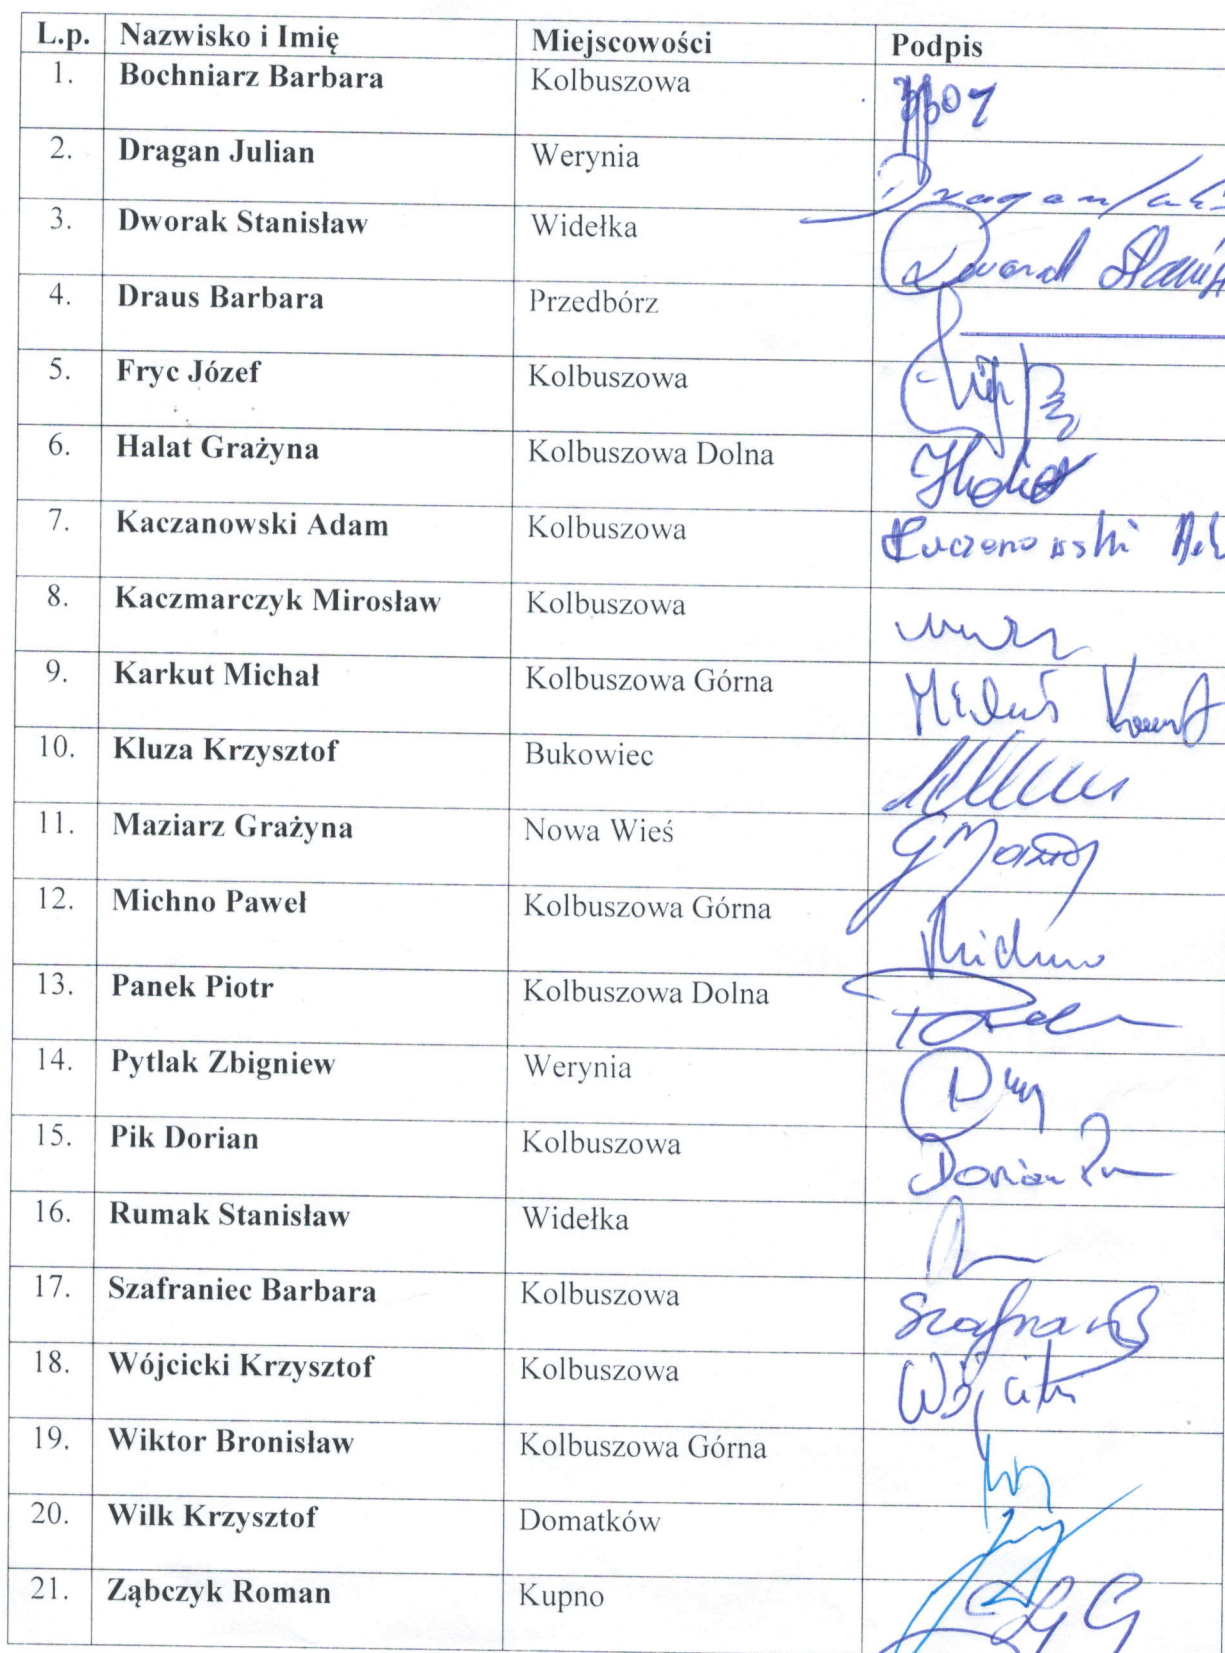 L.p. Nazwisko i Imię Miejscowości Podpis
1. Bochniarz Barbara Kolbuszowa
2. Dragan Julian Werynia Dragan
3. Dworak Stanisław Widełka
4. Draus Barbara Przedbórz
5. Fryc Józef Kolbuszowa
6. Halat Grażyna Kolbuszowa Dolna
7. Kaczanowski Adam Kolbuszowa Kaczanowski
8. Kaczmarczyk Mirosław Kolbuszowa
9. Karkut Michał Kolbuszowa Górna
10. Kluza Krzysztof Bukowiec
11. Maziarz Grażyna Nowa Wieś
12. Michno Paweł Kolbuszowa Górna Michno
13. Panek Piotr Kolbuszowa Dolna
14. Pytlak Zbigniew Werynia
15. Pik Dorian Kolbuszowa Dorian
16. Rumak Stanisław Widełka
17. Szafraniec Barbara Kolbuszowa
18. Wójcicki Krzysztof Kolbuszowa
19. Wiktor Bronisław Kolbuszowa Górna
20. Wilk Krzysztof Domatków
21. Ząbczyk Roman Kupno